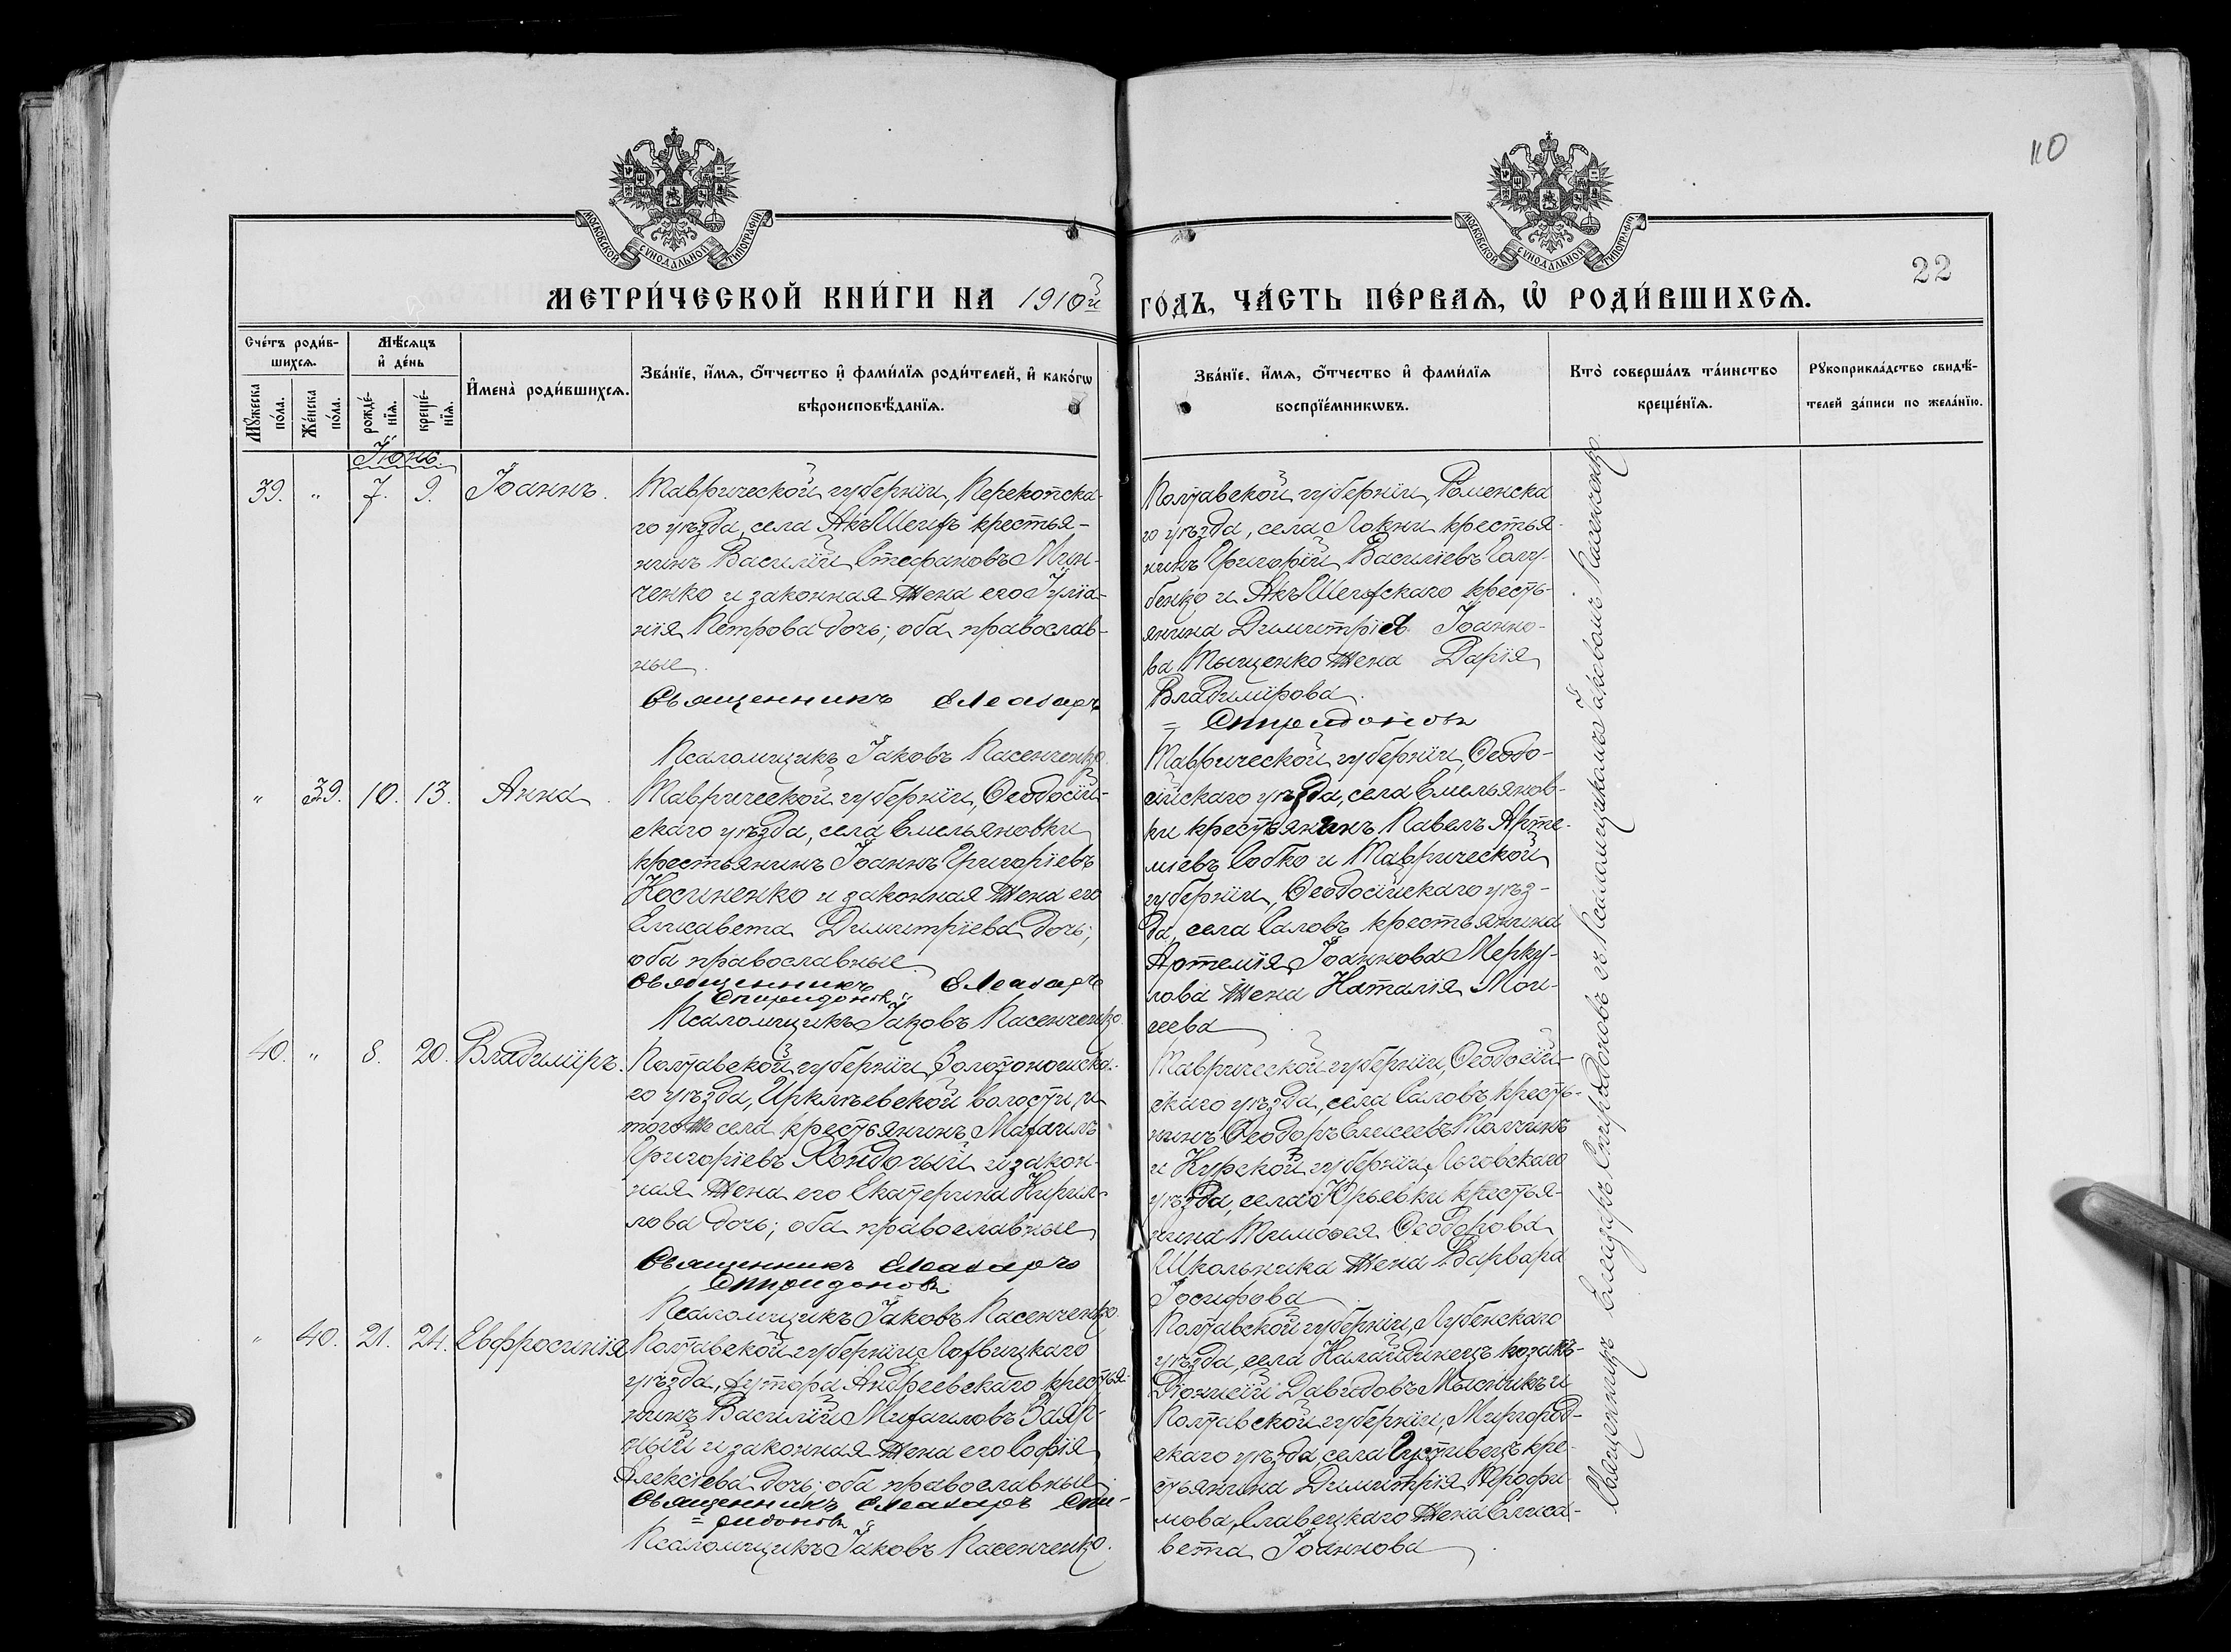 110
МОСКОВСКОЙ СѴНОДАЛЬНОЙ ТИПОГРАФІИ
МОСКОВСКОЙ СѴНОДАЛЬНОЙ ТИПОГРАФІИ
22
МЕТРИ́ЧЕСКОЙ КНИ́ГИ НА 1910й ГО́ДЪ, ЧА́СТЬ ПЕ́РВАѦ, Ѡ҆ РОДИ́ВШИХСѦ.
Сче́тъ роди́в-
шихсѧ.
Мꙋ́жеска по́ла.
Же́нска по́ла.
Мѣ́сѧцъ
и҆ де́нь
рожде́-
нїѧ.
креще́-
нїѧ.
И҆мена̀ роди́вшихсѧ.
Зва́нїе, и҆́мѧ, ѻ҆́тчество и҆ фами́лїѧ роди́телей, и҆ како́гѡ
вѣроисповѣ́данїѧ.
Зва́нїе, и҆́мѧ, ѻ҆́тчество и҆ фами́лїѧ
воспрїе́мникѡвъ.
Кто̀ соверша́лъ та́инство
креще́нїѧ.
Рꙋкоприкла́дство свидѣ́-
телей за́писи по жела́нїю.
Іюнь.
39. " 7. 9. Іоаннъ.
Таврической губерніи, Перекопска-
го уѣзда, села Акъ-Шеихъ крестья-
нинъ Василій Стефановъ Мин-
ченко и законная жена его Іуліа-
нія Петрова дочь; оба православ-
ные.
Священникъ Елеазаръ
= Спиридоновъ
Псаломщикъ Іаковъ Пасенченко.
Полтавской губерніи, Роменска
го уѣзда, села Локни крестья-
нинъ Григорій Василіевъ Голу-
бенко и Акъ-Шеихскаго кресть-
янина Димитрія Іоанно-
ва Тыщенко жена Дарія
Владимірова.
" 39. 10. 13. Анна.
Таврической губерніи, Ѳеодосій-
скаго уѣзда, села Емельяновки
крестьянинъ Іоаннъ Григоріевъ
Косиненко и законная жена его
Елисавета Димитріева дочь;
оба православные.
Священникъ Елеазаръ
Спиридоновъ
Псаломщикъ Іаковъ Пасенченко.
Таврической губерніи, Ѳеодо-
сійскаго уѣзда, села Емельянов-
ки крестьянинъ Павелъ Арте-
міевъ Собко и Таврической
губерніи, Ѳеодосійскаго уѣз-
да, села Саловъ крестьянина
Артемія Іоаннова Мерку-
лова жена Наталія Мои-
сеева
40. " 8. 20. Владиміръ.
Полтавской губерніи, Золотоношска-
го уѣзда, Ирклѣевской волости, и
того-же села крестьянинъ Михаилъ
Григоріевъ и закон-
ная жена его Екатерина Кирил-
лова дочь; оба православные
Священникъ Елеазаръ
Спиридоновъ
Псаломщикъ Іаковъ Пасенченко.
Таврической губерніи, Ѳеодосій-
скаго уѣзда, села Саловъ кресть-
нинъ Ѳеодоръ Елисеевъ
и Курской губерніи, Льговскаго
уѣзда, села Юрьевки крестья-
нина Тимоѳея Ѳеодорова
Школьника жена Варвара
Іосифова
" 40. 21. 24. Евфросинія
Полтавской губерніи, Лохвицкаго
уѣзда, хутора Андреевскаго крестья-
нинъ Василій Михаиловъ Заяр-
ный и законная жена его Софія
Алексіева дочь; оба православные.
Священникъ Елеазаръ Спи-
= ридоновъ
Псаломщикъ Іаковъ Пасенченко.
Полтавской губерніи, Лубенскаго
уѣзда, села Калайдинецъ козакъ
Діонисій Давидовъ Мысникъ и
Полтавской губерніи, Миргород-
скаго уѣзда, села кре-
стьянина Димитрія Трофи-
мова, Славецкаго жена Елиса-
вета Іоаннова
Священникъ Елеазаръ Спиридоновъ съ Псаломщикомъ Іаковомъ Пасенченко.